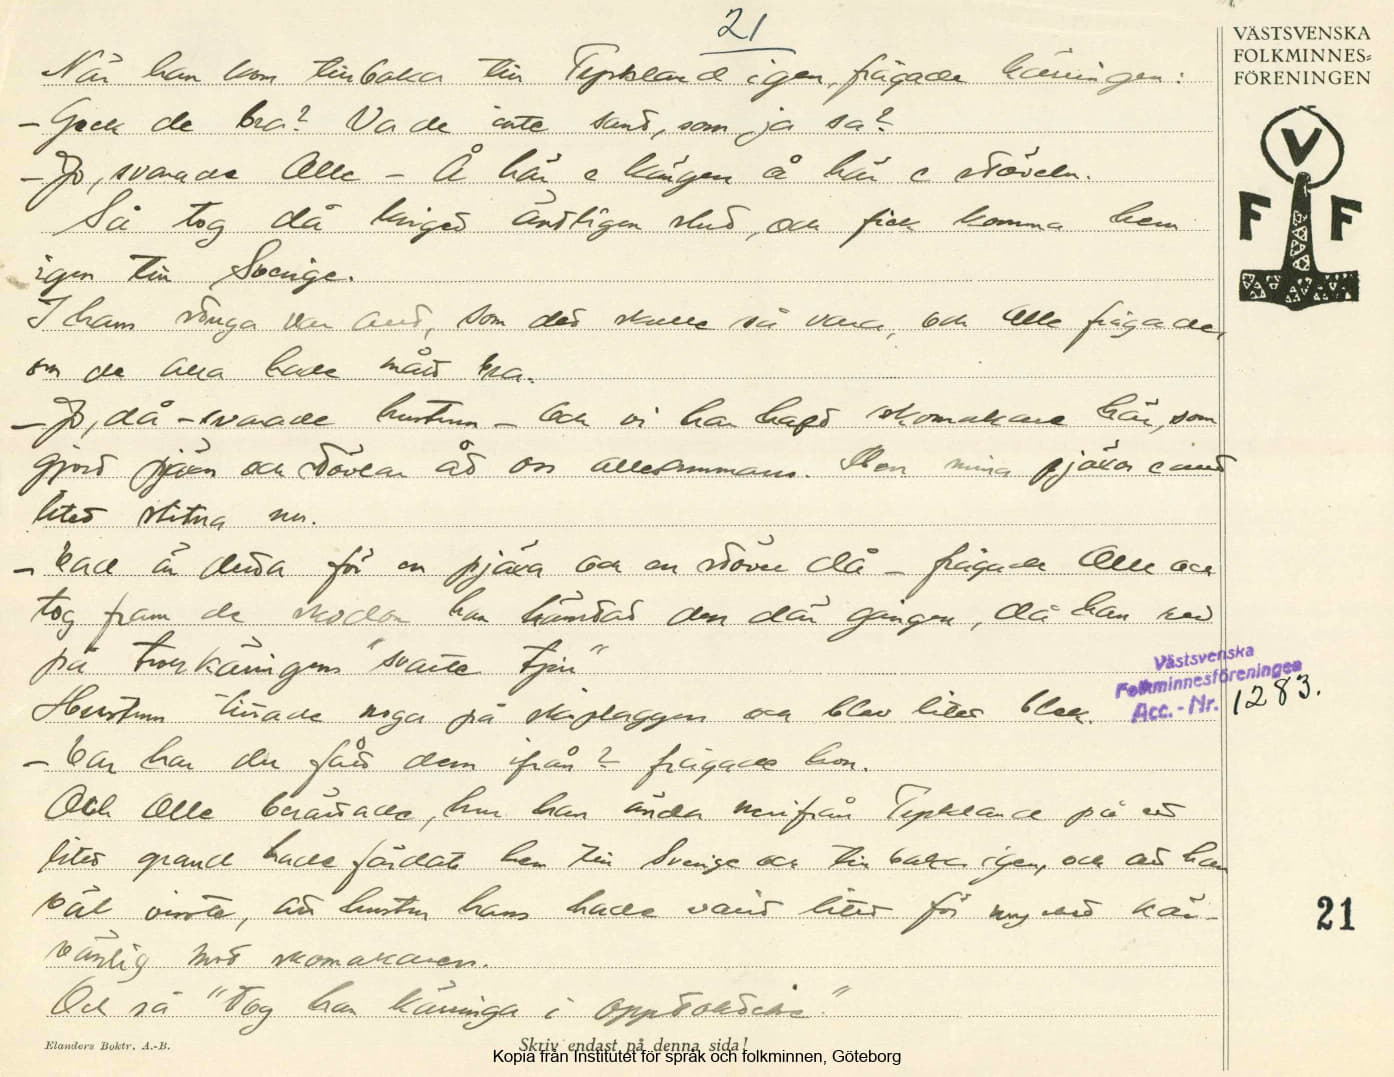 21
VÄSTSVENSKA
FOLKMINNES=
FÖRENINGEN
V
F F
När han kom tillbaka till Tyskland igen, frågade käringen:
— Geck de bra? Va de inte sant, som ja sa?
— Jo, svarade Olle — Å här e kängen å här e stöveln.
Så tog då kriget äntligen slut, och fick komma hem
igen till Sverige.
I hans stuga var allt, som det skulle så vara, och Olle frågade,
om de alla hade mått bra.
— Jo, då — svarade hustrun — och vi har haft skomakare här, som
gjort pjäxor och stövlar åt oss allesammans. Men mina pjäxor e allt
litet slitna nu.
— Vad är detta för en pjäxa och en stövel då — frågade Olle och
tog fram de skodon han hämtat den där gången, då han red
på trollkäringens "svarte tjur"
Hustrun tittade noga på skoplaggen och blev litet blek.
— Var har du fått dem ifrån? frågade hon.
Och Olle berättade, hur han ända nerifrån Tyskland på ett
litet grand hade färdats hem till Sverige och tillbaka igen, och att han
väl visste, att hustru hans hade varit litet för mycket kär-
vänlig mot skomakaren.
Och så "tog han käringa i"
Västsvenska
Folkminnesföreningen
Acc. - Nr. 1283.
21
Elanders Boktr. A.-B.
Skriv endast på denna sida!
Kopia från Institutet för språk och folkminnen, Göteborg